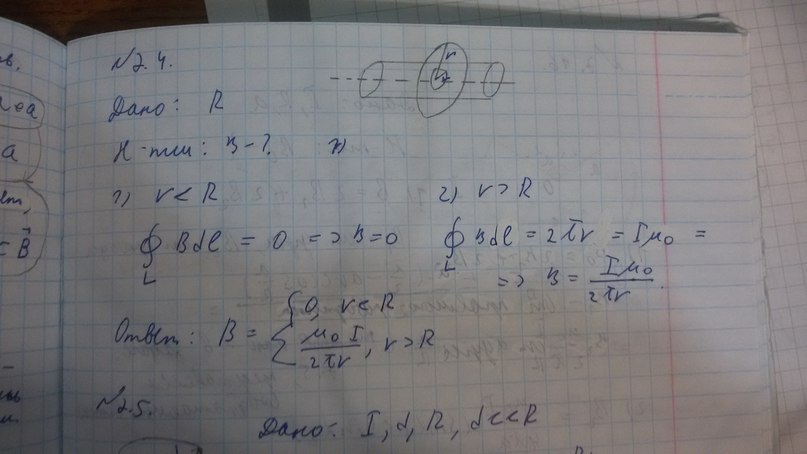 №2.4.
r
Дано: R
Н-ти: B-?
1) r < R
2) r > R
∮ B dl = 0 => B=0
L
∮ B dl = 2πr = Iμ₀ =
L
=> B = Iμ₀/2πr.
Ответ: B = { 0, r < R
μ₀I/2πr, r > R
№2.5.
Дано: I, d, R, d<<R